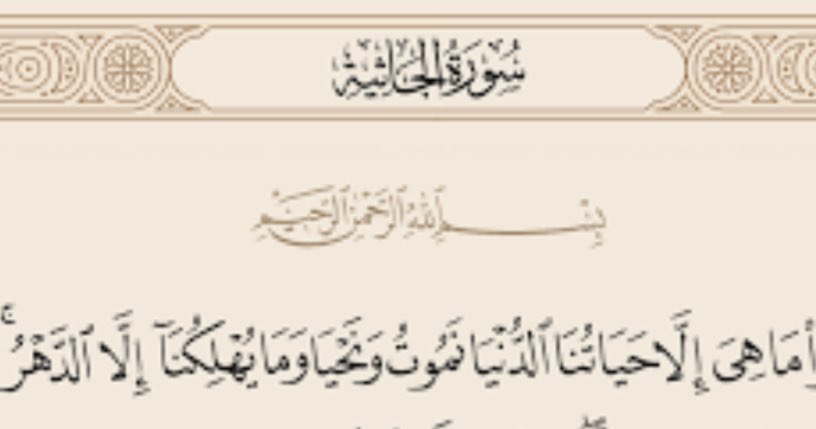 سُورَةُ الجَاثِيَة
بِسْمِ ٱللَّهِ ٱلرَّحْمَٰنِ ٱلرَّحِيمِ
مَا هِىَ إِلَّا حَيَاتُنَا ٱلدُّنْيَا نَمُوتُ وَنَحْيَا وَمَا يُهْلِكُنَآ إِلَّا ٱلدَّهْرُ ۚ